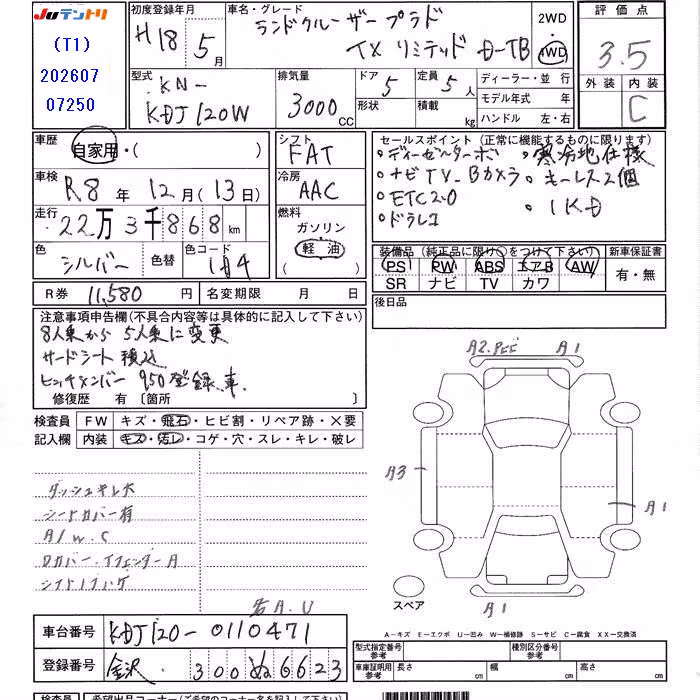 Juテントリ
(T1)
202607
07250
初度登録年月 H18年 5月
車名・グレード ランドクルーザープラド
TXリミテッド D-TB
2WD
4WD
評価点
3.5
外装 内装
C
型式 KN-
KDJ120W
排気量
3000 CC
ドア 5
形状
定員 5人
積載 kg
ディーラー・並行
モデル年式 年
ハンドル 左・右
車歴 自家用・( )
シフト FAT
車検 R8年 12月(13日)
冷房 AAC
走行 22万3千868km
燃料 ガソリン
軽油
( )
色 シルバー 色替 色コード 1D4
R券 11,580円 名変期限 月 日
セールスポイント (正常に機能するものに限ります)
・ディーゼルターボ ・寒冷地仕様
・ナビTV-Bカメラ ・キーレス2個
・ETC2.0 ・1KD
・ドラレコ
装備品 (純正品に限り○をつけて下さい) 新車保証書
PS PW ABS エアB AW
SR ナビ TV カワ
有・無
後日品
注意事項申告欄(不具合内容等は具体的に記入して下さい)
8人乗から5人乗に変更
サードシート積込
ヒッチメンバー 950登録車
修復歴 有 〔箇所 〕
検査員 FW キズ・飛石・ヒビ割・リペア跡・X要
記入欄 内装 キズ・汚レ・コゲ・穴・スレ・キレ・破レ
ダッシュキレ大
シートカバー有
A/W.C
シフトノブハゲ
右A.U
A2.PヒビA1
A3
A1
A1
スペア
A-キズ E-エクボ U-凹み W-補修跡 S-サビ C-腐食 XX-交換済
車台番号 KDJ120-0110471
登録番号 金沢 300 ぬ 6623
型式指定番号 参考 種別区分番号 参考
車庫証明用 参考 長さ cm 幅 cm 高さ cm
検査員 希望出品コーナー(ご希望のコーナー名を記入して下さい)